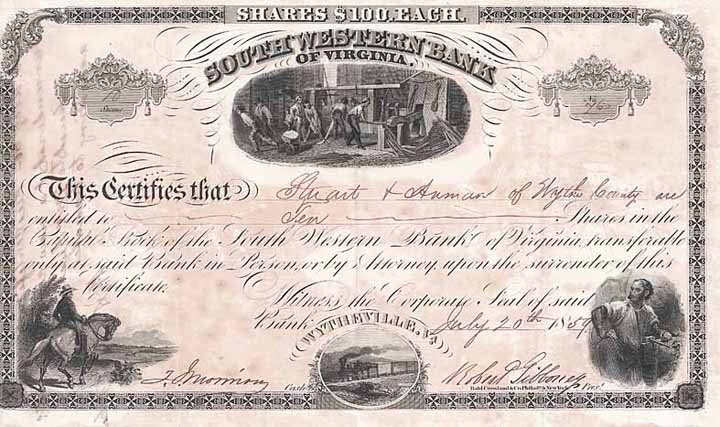 SHARES $100. EACH.
SOUTH WESTERN BANK
OF VIRGINIA.
This Certifies that Stuart & of Wythe County are
entitled to Ten Shares in the
Capital Stock of the South Western Bank of Virginia, transferable
only at said Bank in Person, or by Attorney, upon the surrender of this
Certificate.
Witness the Corporate Seal of said
Bank July 20th 1859
WYTHEVILLE, Va.
Cash.r
Pres.t